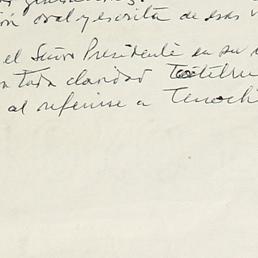 ión oral y escrita de esas
el Señor Presidente en su
toda claridad
al referirse a Tenoch